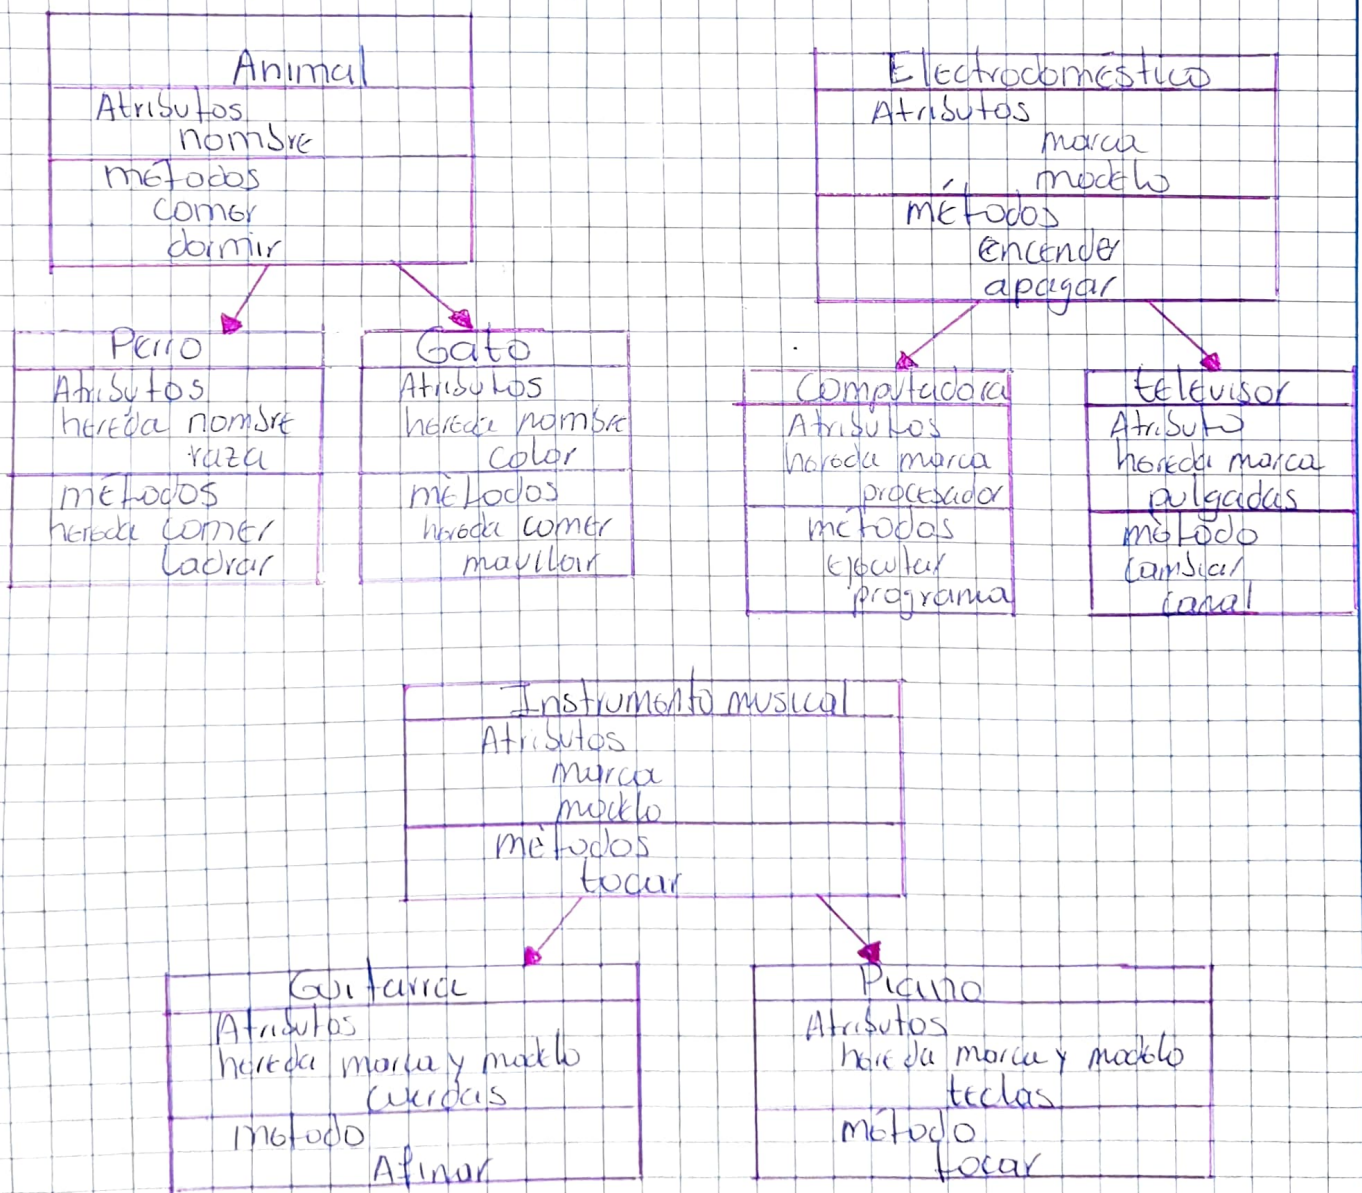 Animal
Atributos
nombre
métodos
comer
dormir
Perro
Atributos
hereda nombre
raza
métodos
hereda comer
Ladrar
Gato
Atributos
hereda nombre
color
métodos
hereda comer
maullar
Electrodoméstico
Atributos
marca
modelo
métodos
encender
apagar
Computadora
Atributos
hereda marca
procesador
métodos
Ejecutar
programa
televisor
Atributo
hereda marca
pulgadas
método
cambiar
canal
Instrumento musical
Atributos
marca
modelo
métodos
tocar
Guitarra
Atributos
hereda marca y modelo
cuerdas
metodo
Afinar
Piano
Atributos
hereda marca y modelo
teclas
método
tocar